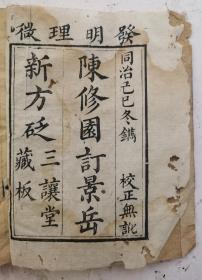 發明理微
同治己巳冬鐫
校正無訛
陳修園訂景岳
新方砭
三讓堂
藏板